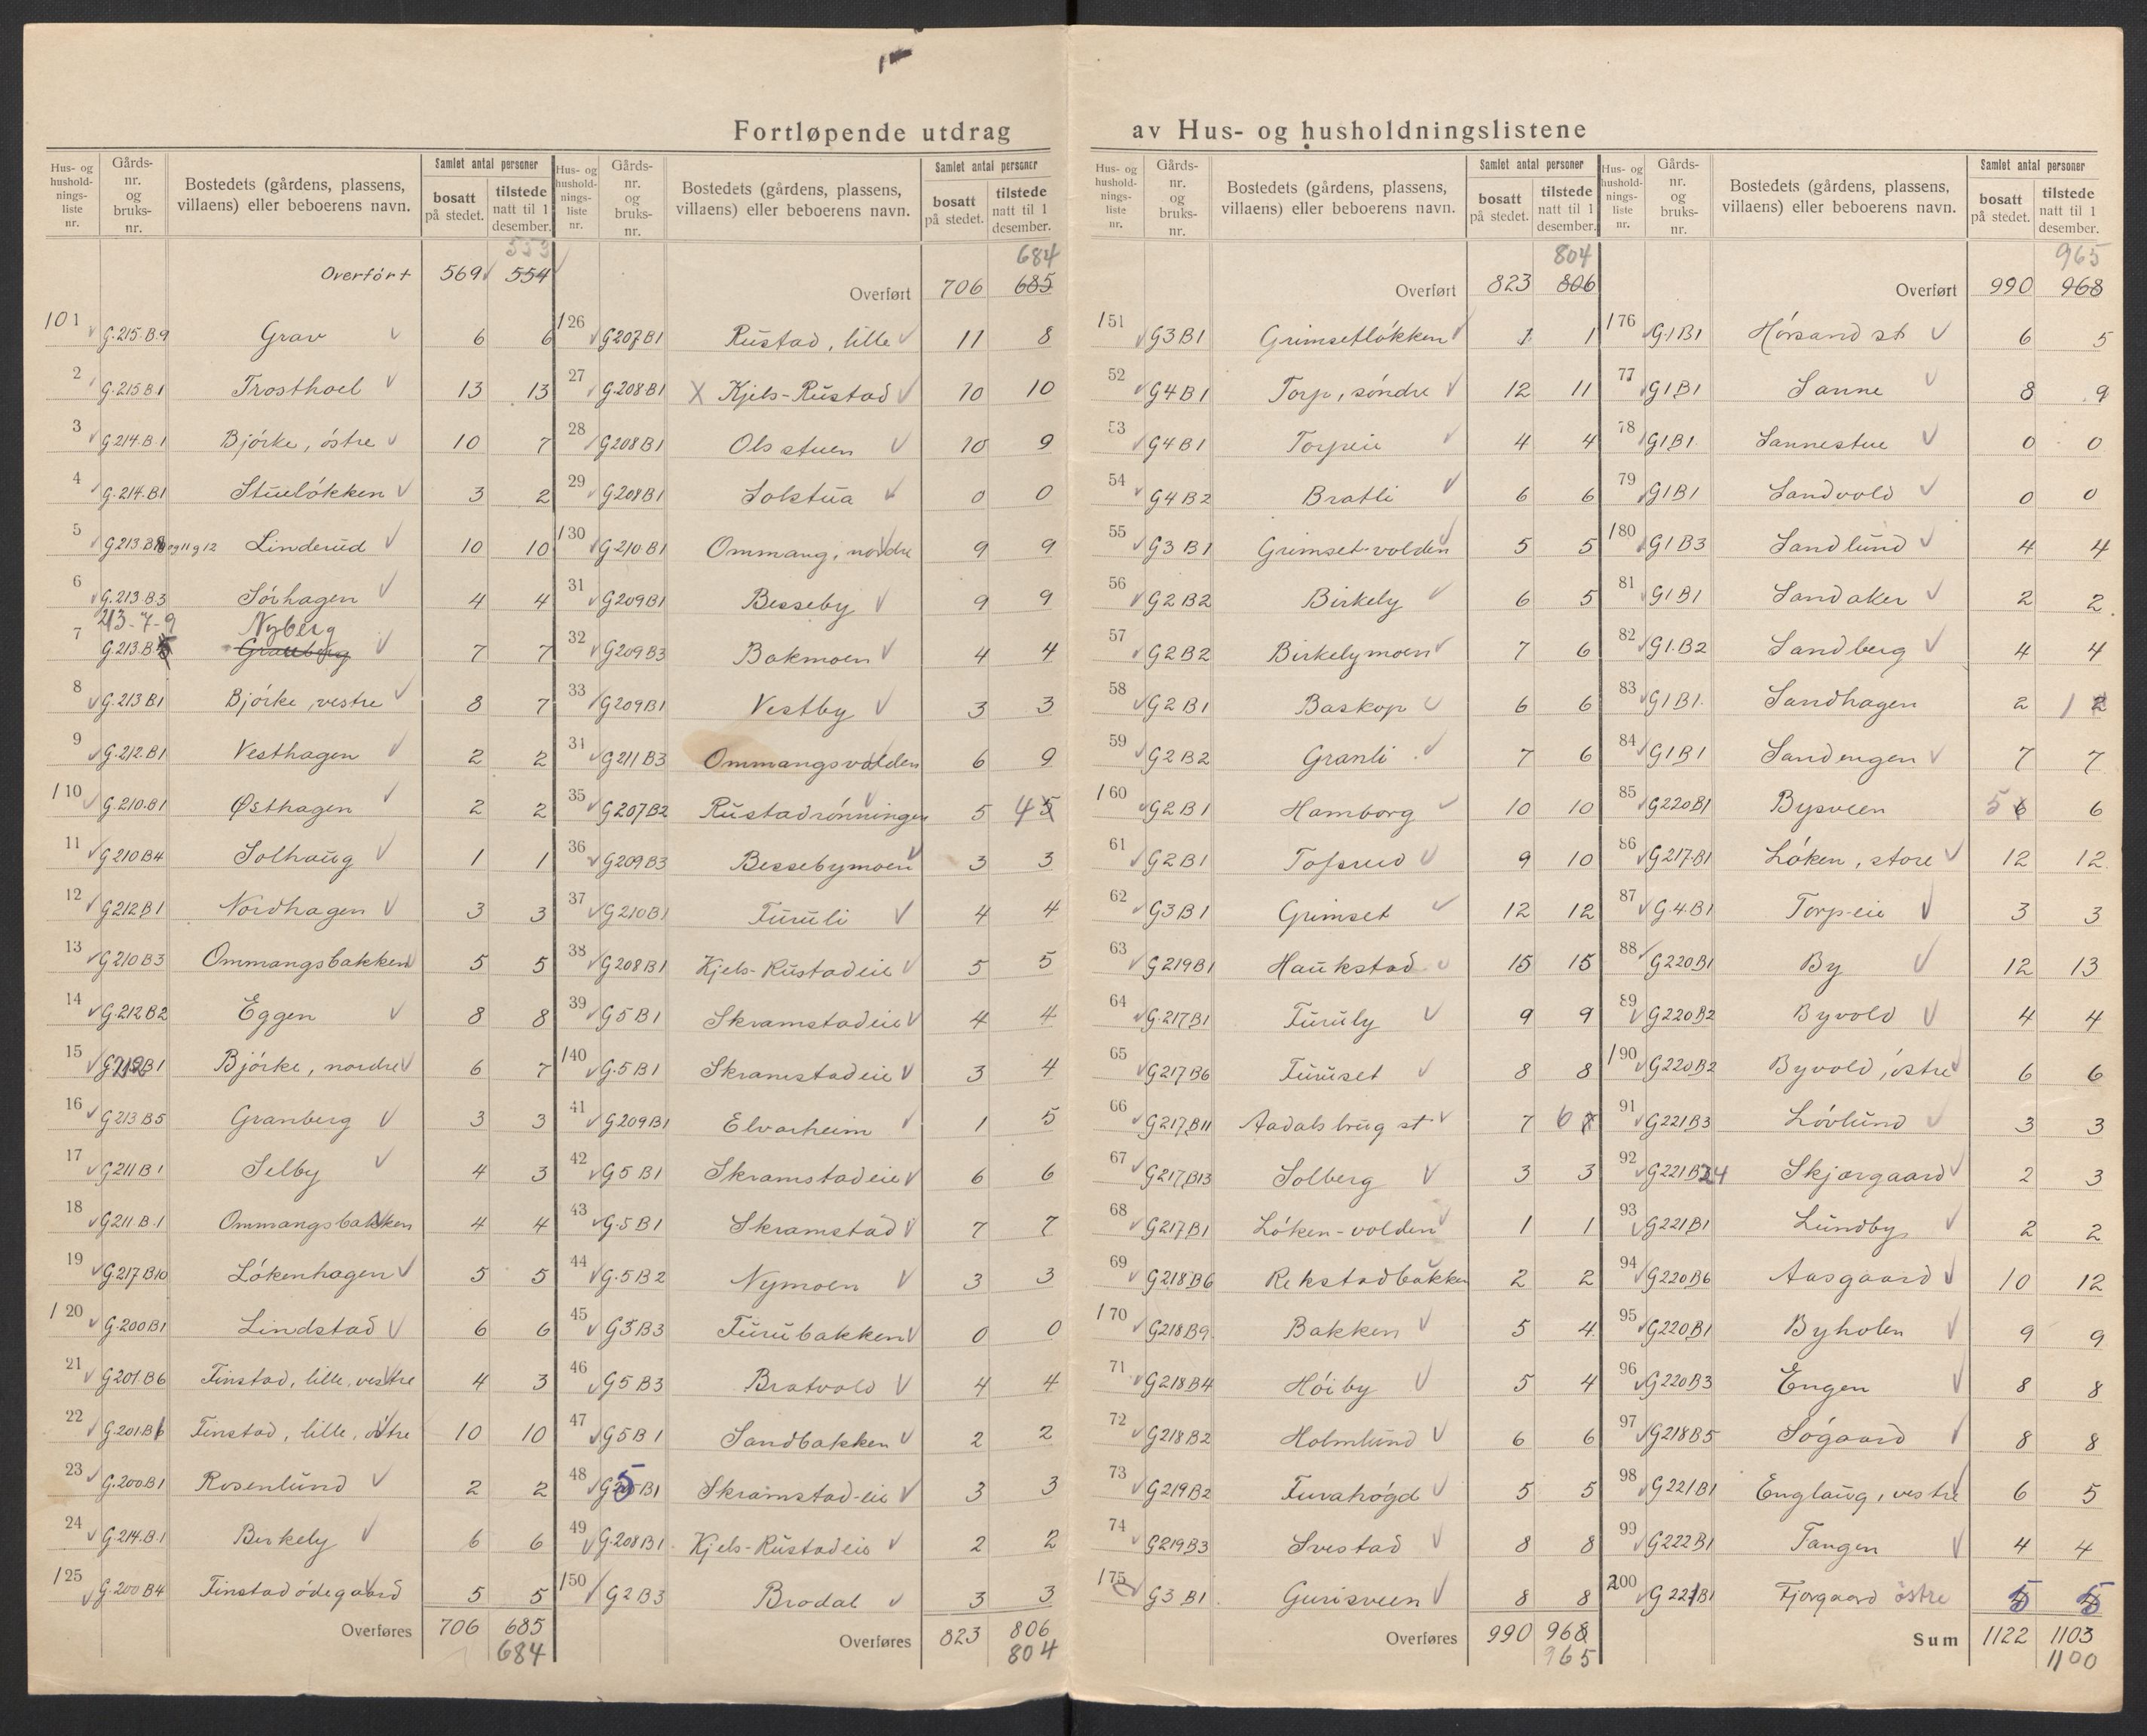 Fortløpende utdrag av Hus- og husholdningslistene
Hus- og husholdningsliste nr. | Gårds-nr. og bruks-nr. | Bostedets (gårdens, plassens, villaens) eller beboerens navn. | Samlet antal personer bosatt på stedet. | tilstede natt til 1 desember.
553
Overført 569 554
101 G.215.B.9 Grav 6 6
2 G.215.B1 Trosthoel 13 13
3 G.214.B.1 Bjórke, óstre 10 7
4 G.214.B1 Stuelókken 3 2
5 G213 B og 11 g 12 Linderud 10 10
6 G.213.B3 Sórhagen 4 4
213-7-9 Nyberg
7 G.213.B Granberg 7 7
8 G.213 B1 Bjórke, vestre 8 7
9 G.212.B1 Vesthagen 2 2
110 G.210.B1 Østhagen 2 2
11 G210 B4 Solhaug 1 1
12 G212 B1 Nordhagen 3 3
13 G210 B3 Ommangsbakken 5 5
14 G.212 B2 Eggen 8 8
15 G212B1 Bjórke, nordre 6 7
16 G213 B5 Granberg 3 3
17 G211 B1 Selby 4 3
18 G211.B.1 Ommangsbakken 4 4
19 G.217 B10 Lókenhagen 5 5
120 G.200 B1 Lindstad 6 6
21 G201 B6 Finstad, lille, vestre 4 3
22 G.201.B Finstad, lille, óstre 10 10
23 G.200.B1 Rosenlund 2 2
24 G.214.B.1 Birkely 6 6
125 G.200 B4 Finstadódegaard 5 5
Overføres 706 685
684
Hus- og husholdningsliste nr. | Gårds-nr. og bruks-nr. | Bostedets (gårdens, plassens, villaens) eller beboerens navn. | Samlet antal personer bosatt på stedet. | tilstede natt til 1 desember.
684
Overført 706 685
126 G207 B1 Rustad, lille 11 8
27 G.208 B1 X Kjels-Rustad 10 10
28 G208 B1 Olsstuen 10 9
29 G.208 B1 Solstua 0 0
130 G.210.B1 Ommang, nordre 9 9
31 G209 B1 Besseby 9 9
32 G209 B3 Bakmoen 4 4
33 G209 B1 Vestby 3 3
31 G211 B3 Ommangsvolden 6 9
35 G207 B2 Rustadrónningen 5 4 5
36 G209 B3 Bessebymoen 3 3
37 G210 B1 Furuli 4 4
38 G208 B1 Kjels-Rustadeie 5 5
39 G5 B1 Skramstadeie 4 4
140 G.5 B1 Skramstadeie 3 4
41 G209 B1 Elvarheim 1 5
42 G5 B1 Skramstadeie 6 6
43 G.5 B1 Skramstad 7 7
44 G.5 B2 Nymoen 3 3
45 G5 B3 Furubakken 0 0
46 G5 B3 Bratvold 4 4
47 G5B 1 Sandbakken 2 2
48 G5 B1 Skramstad-eie 3 3
49 G.208 B1 Kjels-Rustadeie 2 2
150 G2 B3 Brodal 3 3
Overføres 823 806
804
Hus- og husholdnings-liste nr. | Gårds-nr. og bruks-nr. | Bostedets (gårdens, plassens, villaens) eller beboerens navn. | Samlet antal personer bosatt på stedet. | tilstede natt til 1 desember.
804
Overført 823 806
151 G3 B1 Grimsetlókken 1 1
52 G4 B1 Torp, sóndre 12 11
53 G4 B1 Torpeie 4 4
54 G4 B2 Bratli 6 6
55 G3 B1 Grimset-volden 5 5
56 G2 B2 Birkely 6 5
57 G2 B2 Birkelymoen 7 6
58 G2 B1 Baskop 6 6
59 G2 B2 Granli 7 6
160 G2 B1 Hamborg 10 10
61 G2 B1 Tofsrud 9 10
62 G3 B1 Grimset 12 12
63 G219 B1 Haukstad 15 15
64 G.217 B1 Furuly 9 9
65 G217 B6 Furuset 8 8
66 G217 B11 Aadalsbrug st 7 6 7
67 G217 B13 Solberg 3 3
68 G217 B1 Lóken-volden 1 1
69 G218 B6 Rekstadbakken 2 2
170 G218 B9 Bakken 5 4
71 G218 B4 Hóiby 5 4
72 G218 B2 Holmlund 6 6
73 G219 B2 Furahógd 5 5
74 G219 B3 Svestad 8 8
175 G3 B1 Gurisveen 8 8
Overføres 990 968
965
Hus- og husholdnings-liste nr. | Gårds-nr. og bruks-nr. | Bostedets (gårdens, plassens, villaens) eller beboerens navn. | Samlet antal personer bosatt på stedet. | tilstede natt til 1 desember.
965
Overført 990 968
176 G.1 B1 Hórsand st 6 5
77 G1 B1 Sanne 8 9
78 G1 B1 Sannestue 0 0
79 G1 B1 Sandvold 0 0
180 G1 B3 Sandlund 4 4
81 G1 B1 Sandaker 2 2
82 G1.B2 Sandberg 4 4
83 G1 B1. Sandhagen 2 1 2
84 G1 B1 Sandengen 7 7
85 G220 B1 Bysveen 5 6 6
86 G217.B1 Lóken, store 12 12
87 G.4.B1 Torp-eie 3 3
88 G220 B1 By 12 13
89 G220 B2 Byvold 4 4
190 G220 B2 Byvold, óstre 6 6
91 G221 B3 Lóvlund 3 3
92 G221 B24 Skjærgaard 2 3
93 G221 B1 Lundby 2 2
94 G220 B6 Aasgaard 10 12
95 G220 B1 Byholen 9 9
96 G220 B3 Engen 8 8
97 G218 B5 Sógaard 8 8
98 G221 B1 Englaug, vestre 6 5
99 G222 B1 Tangen 4 4
200 G221 B1 Fjorgaard østre 5 5
Sum 1122 1103
1100